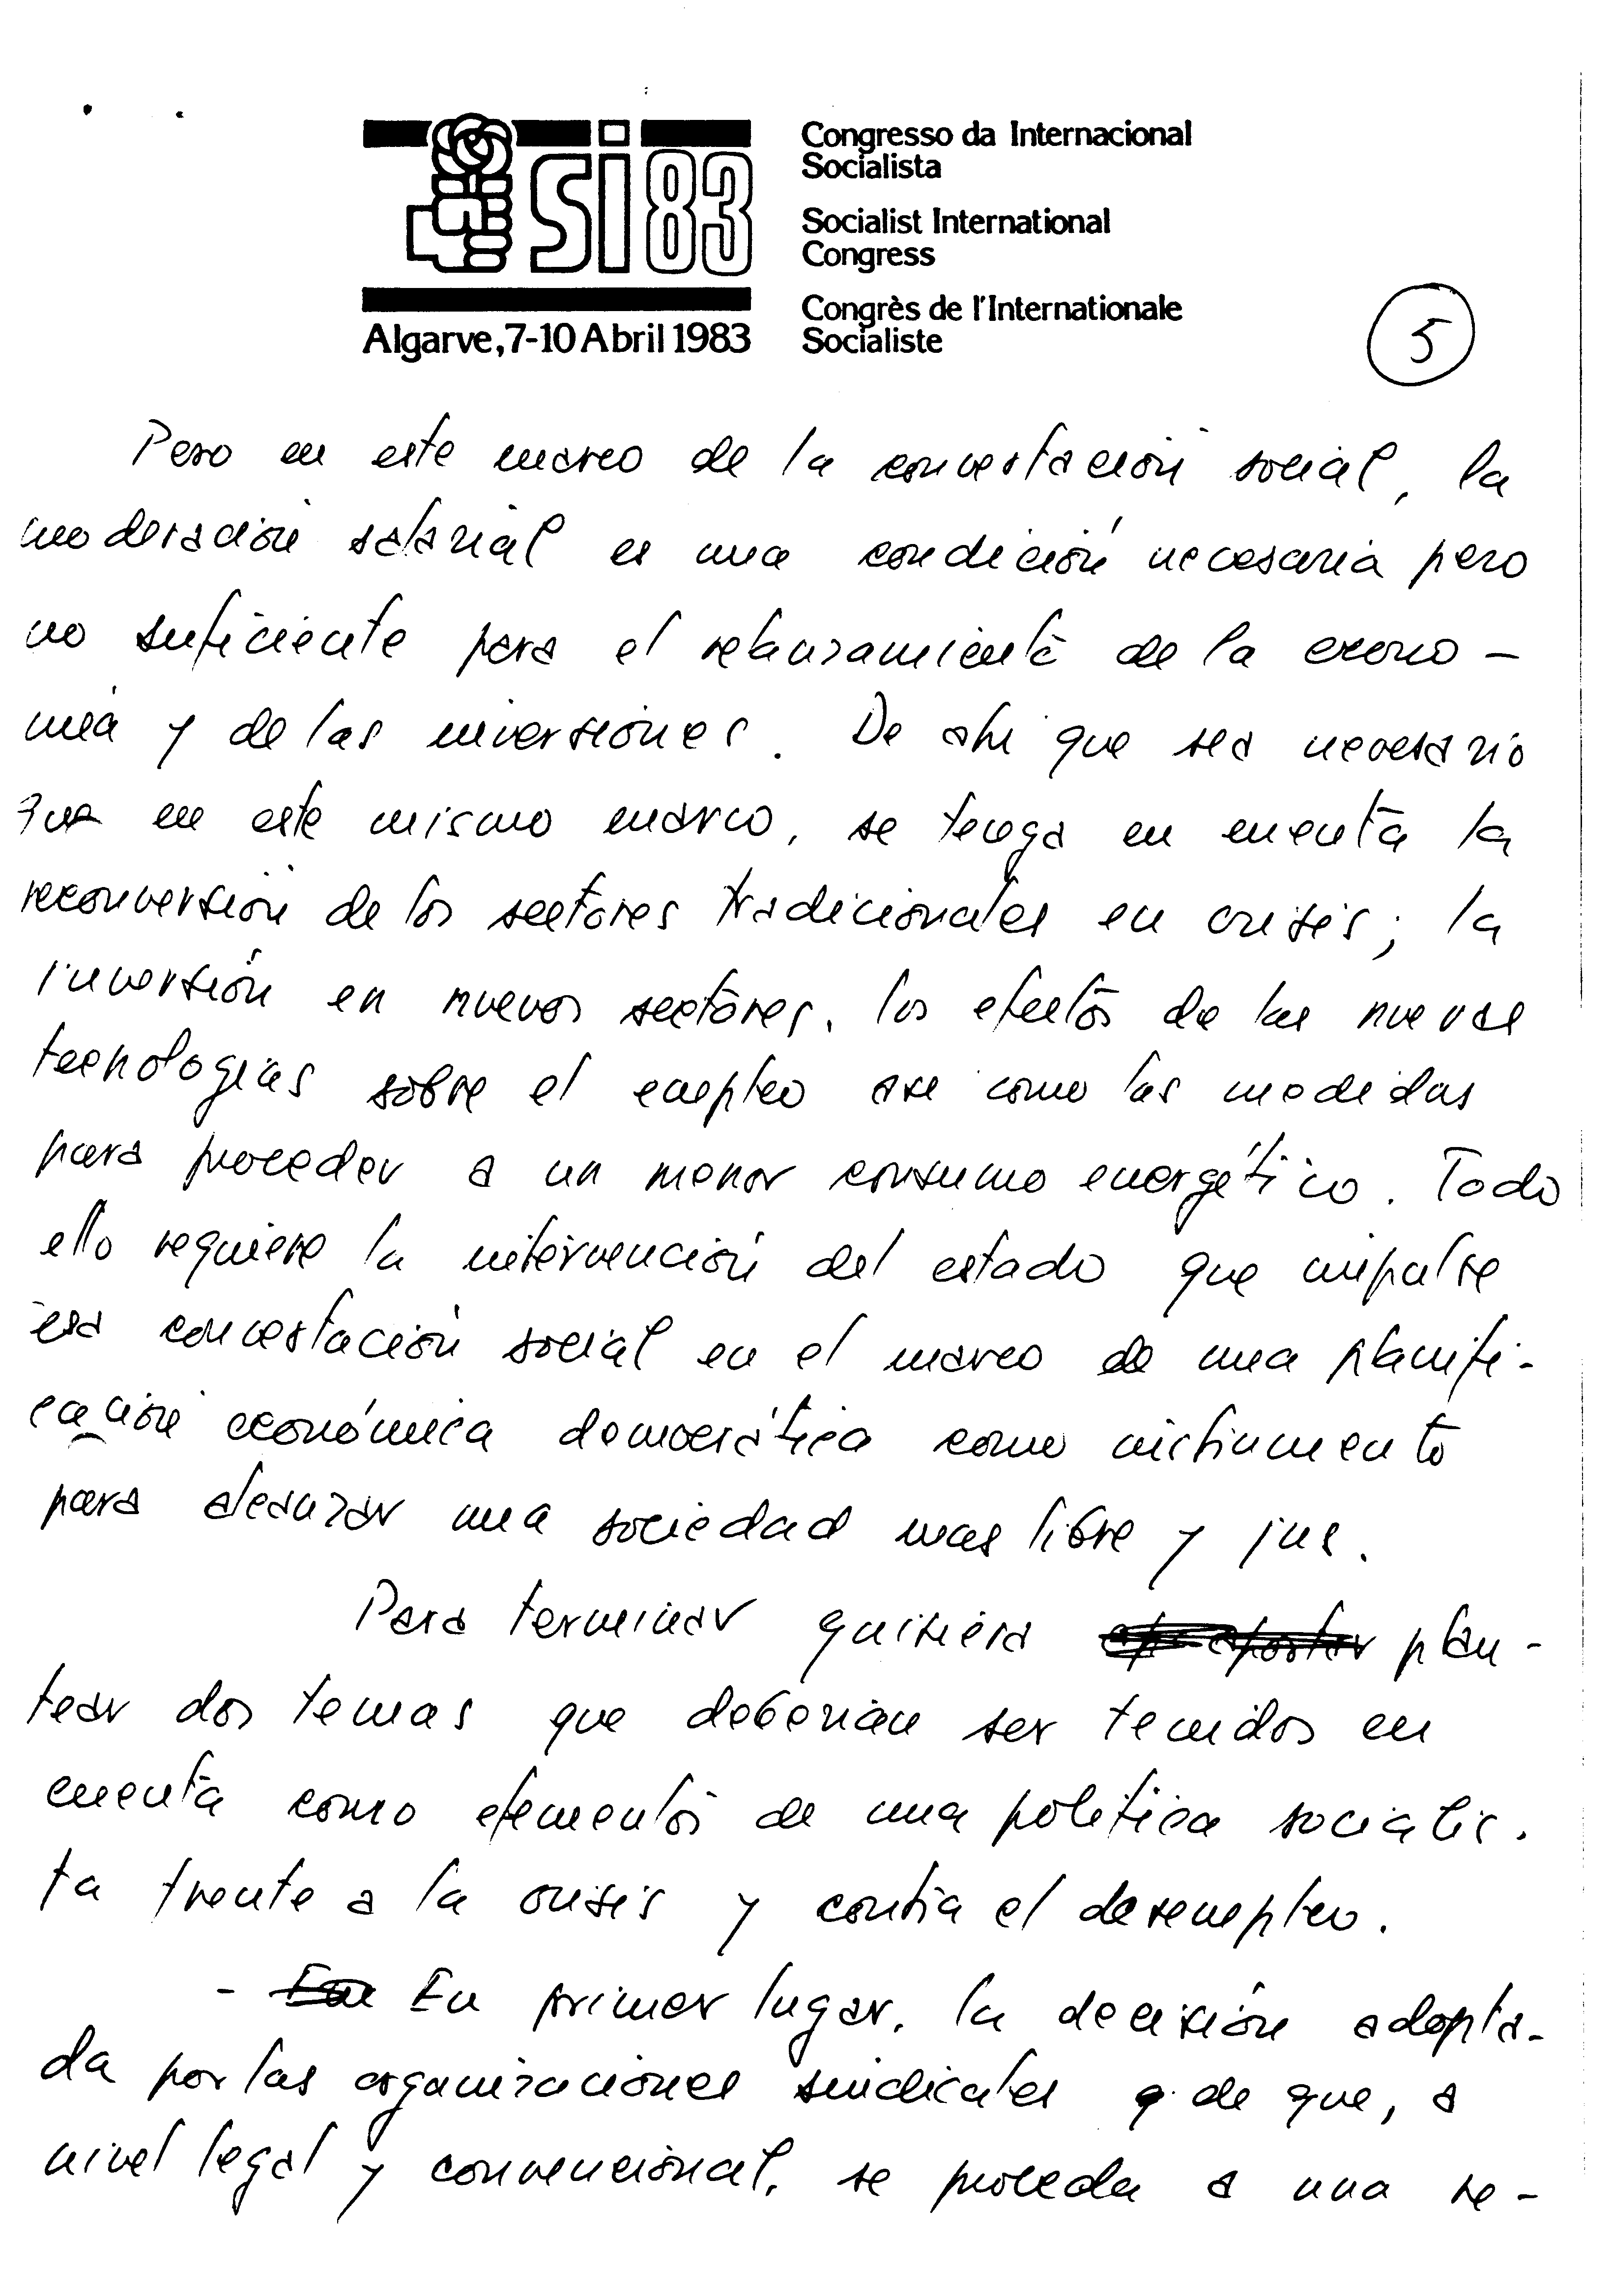 SI 83
Algarve, 7-10 Abril 1983
Congresso da Internacional
Socialista
Socialist International
Congress
Congrès de l'Internationale
Socialiste
5
Pero en este marco de la concertación social, la
moderación salarial es una condición necesaria pero
no suficiente para el relanzamiento de la econo-
mía y de las inversiones. De ahí que sea necesario
que en este mismo marco, se tenga en cuenta la
reconversión de los sectores tradicionales en crisis; la
inversión en nuevos sectores, los efectos de las nuevas
tecnologías sobre el empleo así como las medidas
para proceder a un menor consumo energético. Todo
ello requiere la intervención del estado que impulse
esa concertación social en el marco de una planifi-
cación económica democrática como instrumento
para alcanzar una sociedad mas libre y jus.
Para terminar quisiera plan-
tear dos temas que deberían ser tenidos en
cuenta como elementos de una política socialis-
ta frente a la crisis y contra el desempleo.
- En primer lugar, la decisión adopta-
da por las organizaciones sindicales de que, a
nivel legal y convencional, se proceda a una re-